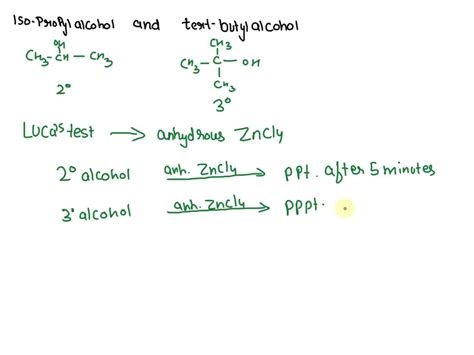 Iso-Propyl alcohol and tert-butyl alcohol
OH CH3
CH3-CH-CH3 CH3-C-OH
CH3
2° 3°
Lucas test → anhydrous ZnCl4
2° alcohol anh. ZnCl4 → ppt. after 5 minutes
3° alcohol anh. ZnCl4 → pppt.